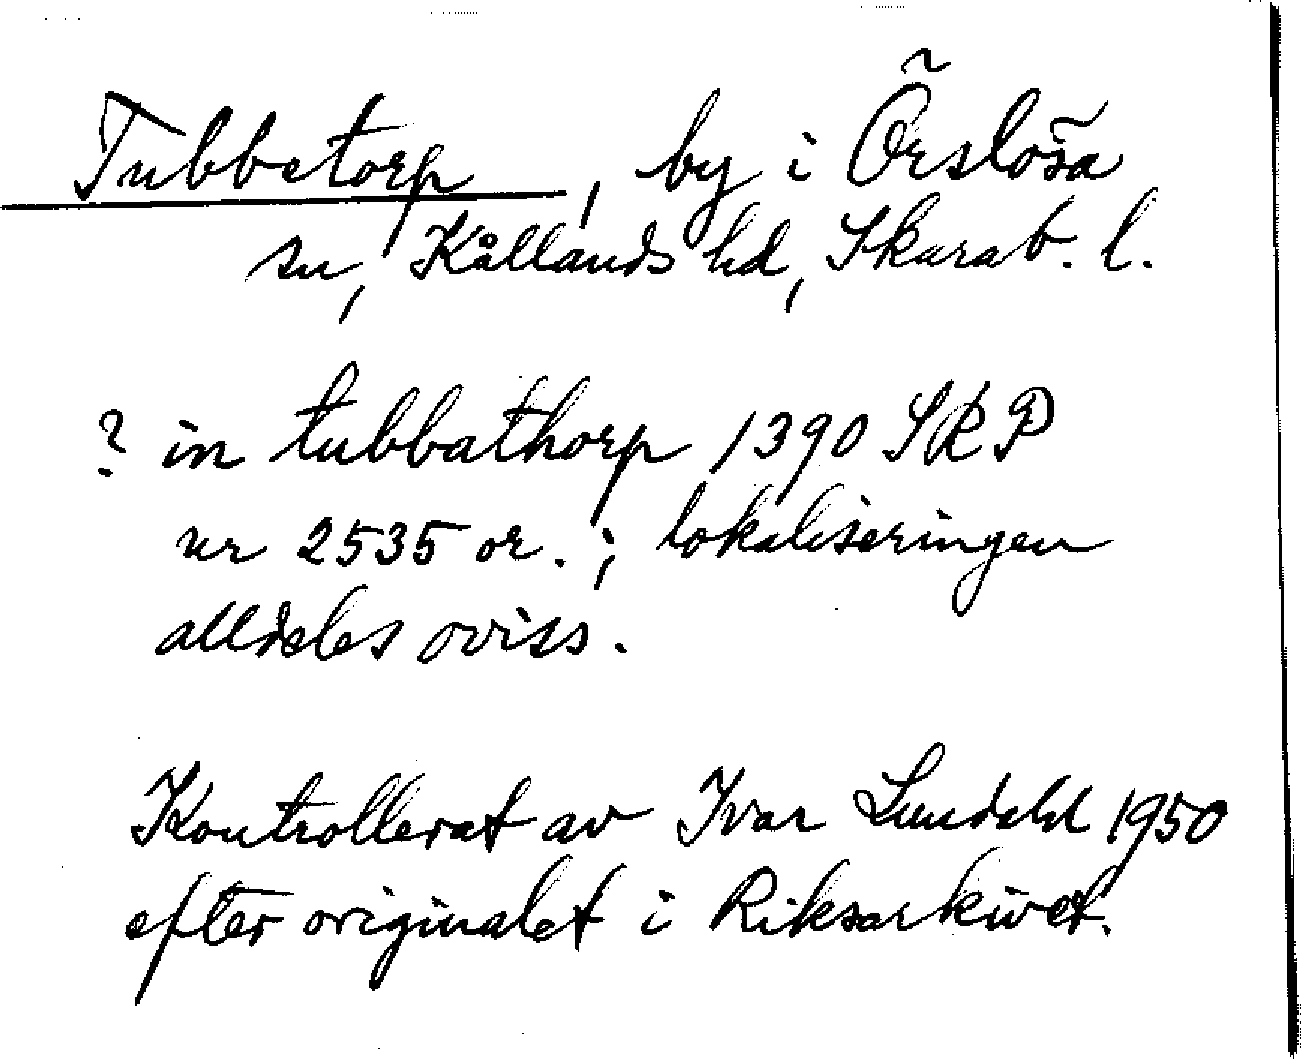 Tubbetorp, by i Örslösa
sn, Kållands hd, Skarab. l.
? in tubbathorp 1390 SRP
nr 2535 or.; lokaliseringen
alldeles oviss.
Kontrollerat av Ivar Lundahl 1950
efter originalet i Riksarkivet.